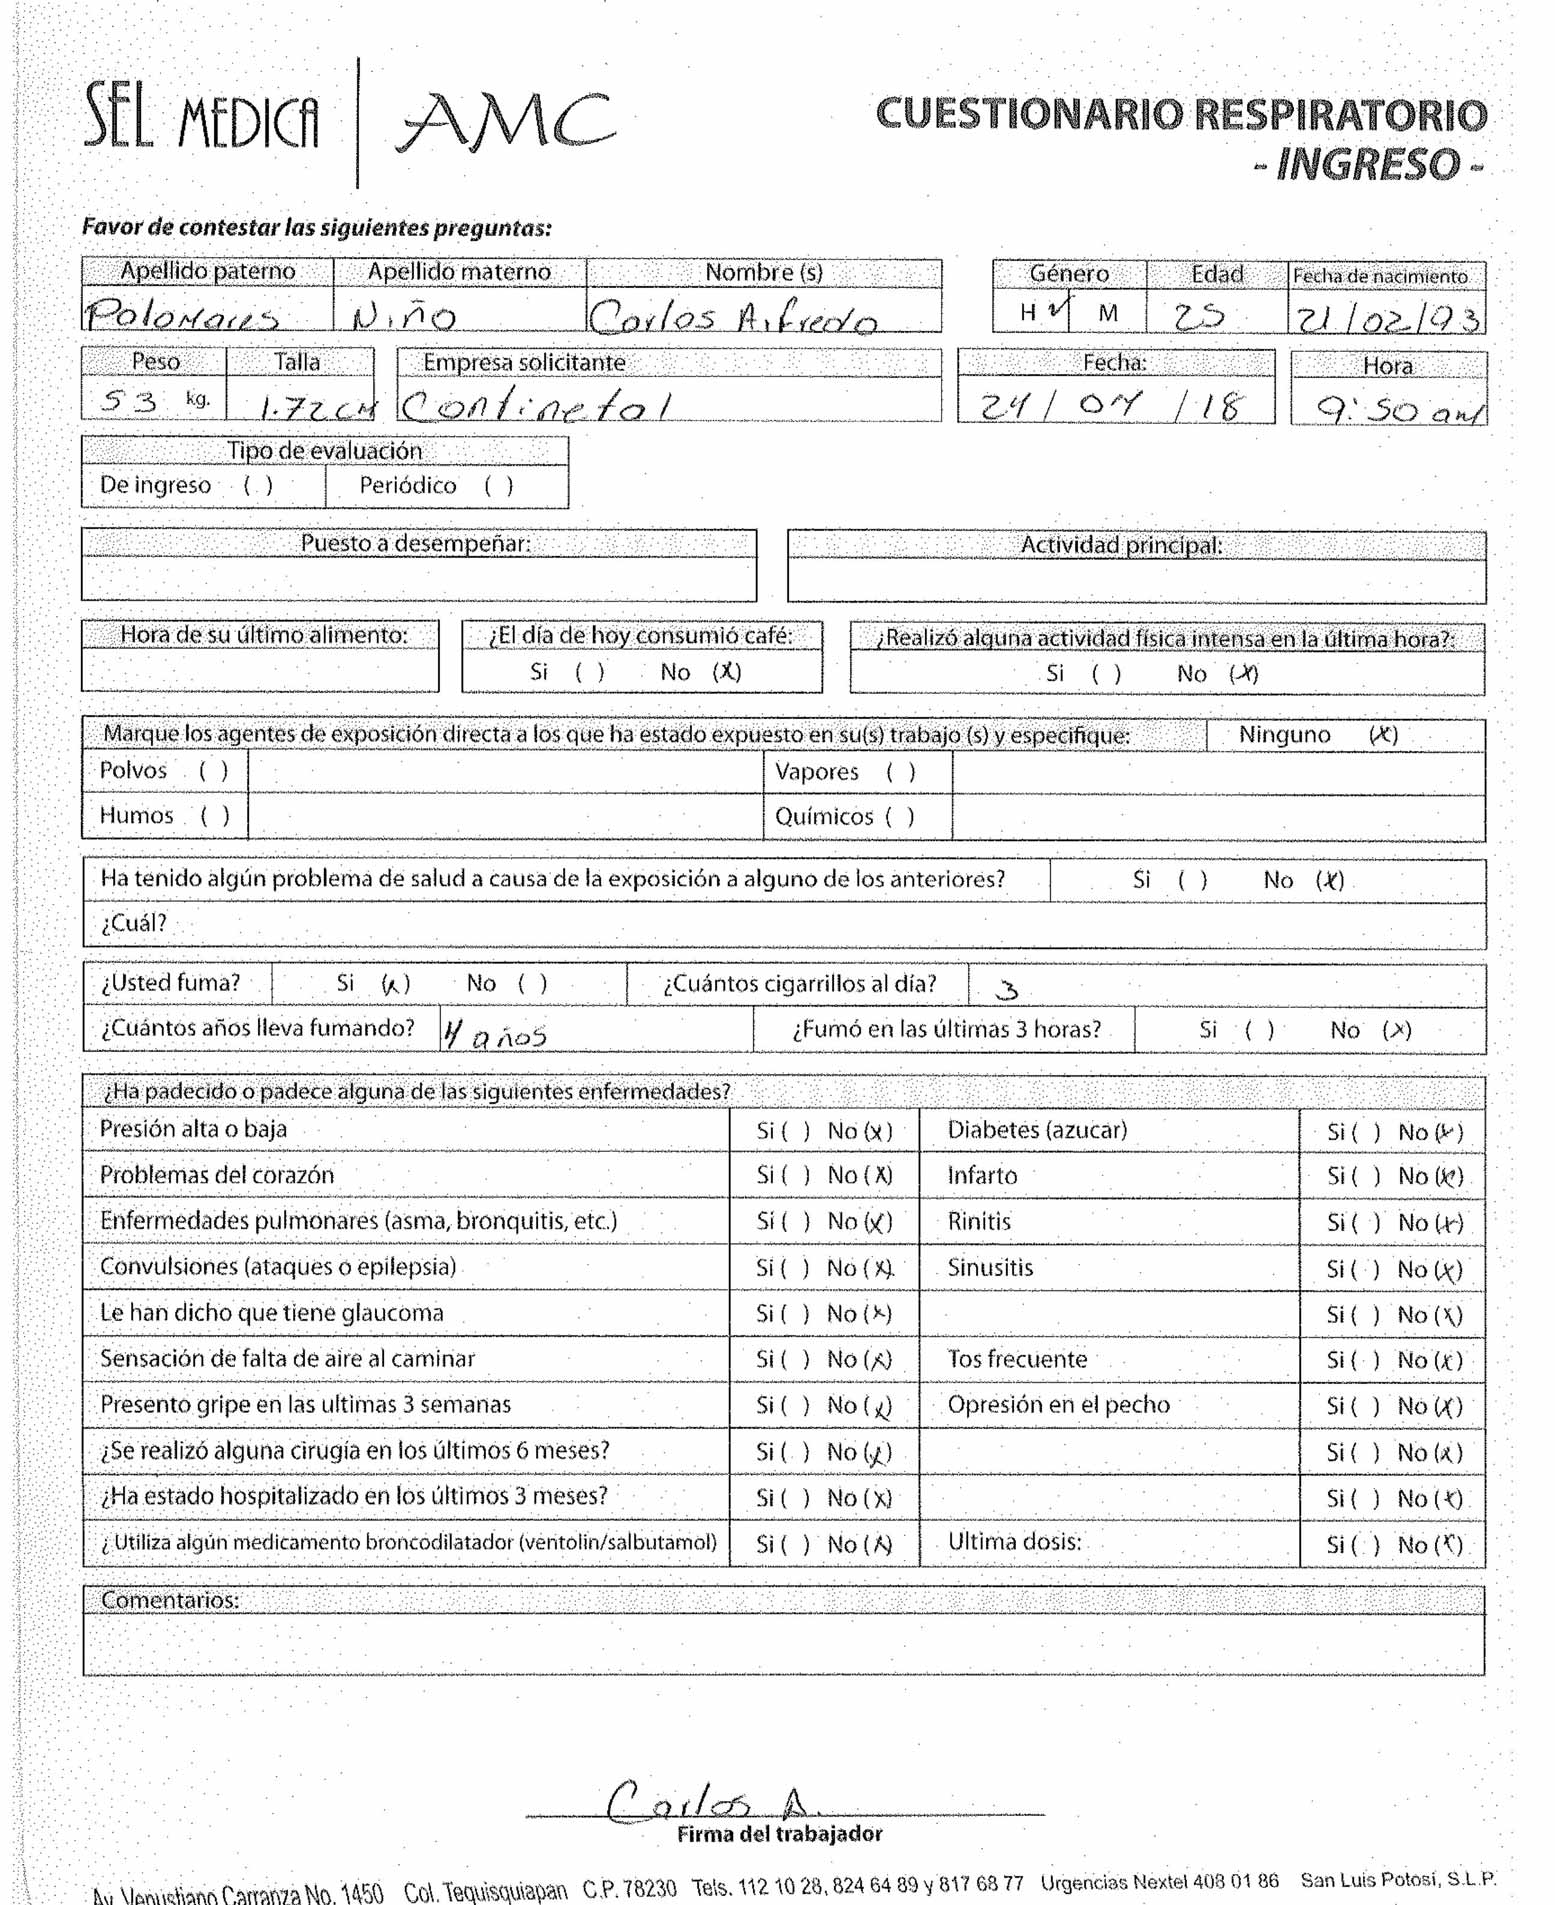 SEL MEDICA | AMC
CUESTIONARIO RESPIRATORIO
- INGRESO -
Favor de contestar las siguientes preguntas:
Apellido paterno Apellido materno Nombre (s) Género Edad Fecha de nacimiento
Palomares Niño Carlos Alfredo H ✓ M 25 21/02/93
Peso Talla Empresa solicitante Fecha: Hora
53 kg. 1.72 cm Continetal 24/04/18 9:50 am
Tipo de evaluación
De ingreso ( ) Periódico ( )
Puesto a desempeñar: Actividad principal:
Hora de su último alimento: ¿El día de hoy consumió café: ¿Realizó alguna actividad física intensa en la última hora?:
Si ( ) No (X) Si ( ) No (X)
Marque los agentes de exposición directa a los que ha estado expuesto en su(s) trabajo (s) y especifique: Ninguno (X)
Polvos ( ) Vapores ( )
Humos ( ) Químicos ( )
Ha tenido algún problema de salud a causa de la exposición a alguno de los anteriores? Si ( ) No (X)
¿Cuál?
¿Usted fuma? Si (X) No ( ) ¿Cuántos cigarrillos al día? 3
¿Cuántos años lleva fumando? 4 años ¿Fumó en las últimas 3 horas? Si ( ) No (X)
¿Ha padecido o padece alguna de las siguientes enfermedades?
Presión alta o baja Si ( ) No (X) Diabetes (azucar) Si ( ) No (X)
Problemas del corazón Si ( ) No (X) Infarto Si ( ) No (X)
Enfermedades pulmonares (asma, bronquitis, etc.) Si ( ) No (X) Rinitis Si ( ) No (X)
Convulsiones (ataques o epilepsia) Si ( ) No (X) Sinusitis Si ( ) No (X)
Le han dicho que tiene glaucoma Si ( ) No (X) Si ( ) No (X)
Sensación de falta de aire al caminar Si ( ) No (X) Tos frecuente Si ( ) No (X)
Presento gripe en las ultimas 3 semanas Si ( ) No (X) Opresión en el pecho Si ( ) No (X)
¿Se realizó alguna cirugía en los últimos 6 meses? Si ( ) No (X) Si ( ) No (X)
¿Ha estado hospitalizado en los últimos 3 meses? Si ( ) No (X) Si ( ) No (X)
¿Utiliza algún medicamento broncodilatador (ventolin/salbutamol) Si ( ) No (X) Ultima dosis: Si ( ) No (X)
Comentarios:
Carlos A.
Firma del trabajador
Av. Venustiano Carranza No. 1450 Col. Tequisquiapan C.P. 78230 Tels. 112 10 28, 824 64 89 y 817 68 77 Urgencias Nextel 408 01 86 San Luis Potosí, S.L.P.